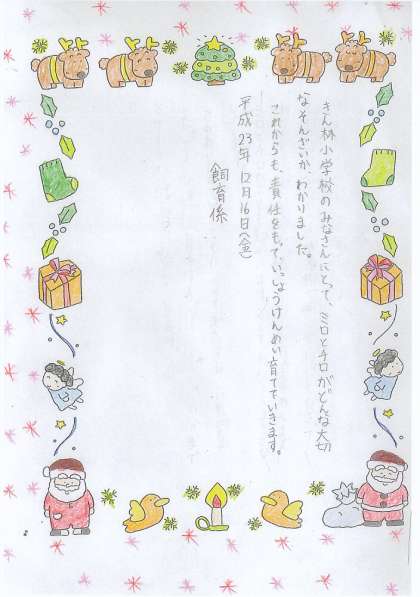 きん林小学校のみなさんにとって、ミロとチロがどんな大切
なそんざいか、わかりました。
これからも、責任をもって、いっしょうけんめい育てていきます。
平成23年12月16日(金)
飼育係